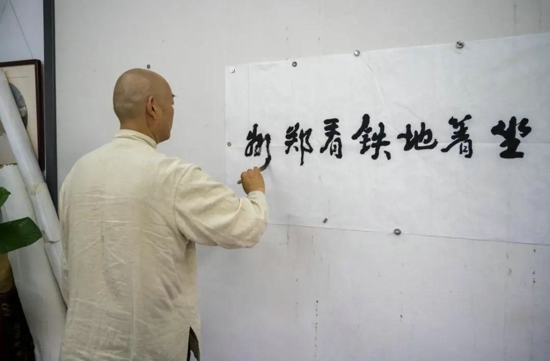 坐着地铁看郑州